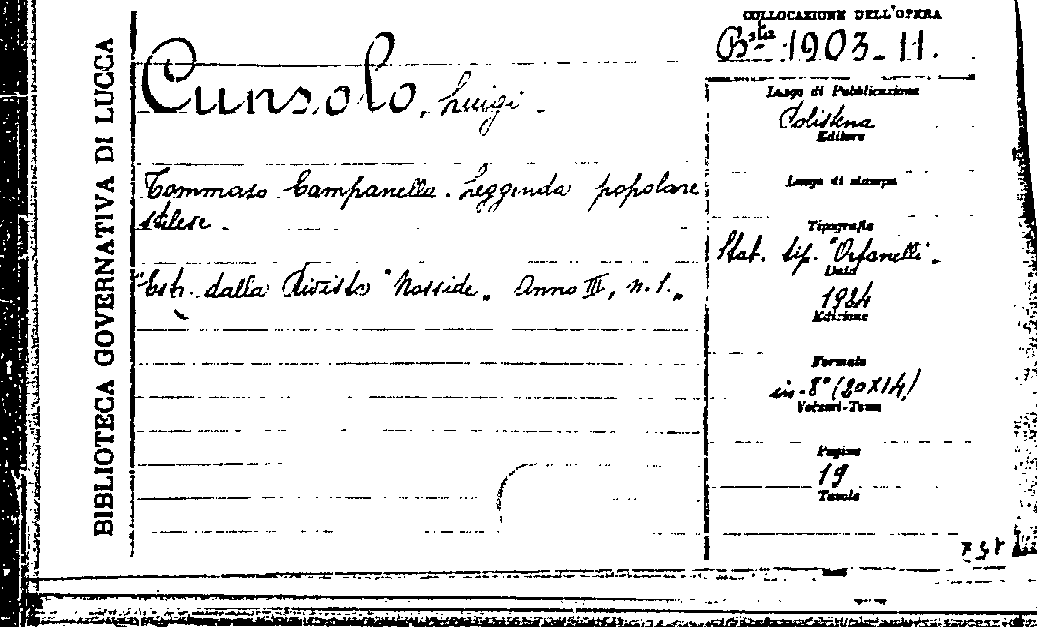 BIBLIOTECA GOVERNATIVA DI LUCCA
COLLOCAZIONE DELL'OPERA
Bsta 1903-11.
Cunsolo, Luigi.
Tommaso Campanella. Leggenda popolare
stilese.
"Estr. dalla Rivista "Nosside" Anno III, n. 1."
Luogo di Pubblicazione
Polistena
Editore
Luogo di stampa
Tipografia
Stab. tip. "Orfanelli".
Data
1924
Edizione
Formato
in-8° (20X14)
Volumi-Tomi
Pagine
19
Tavole